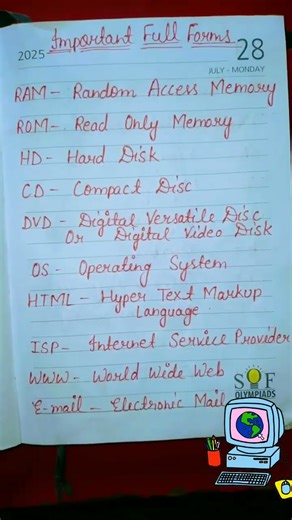 Important Full Forms
2025
28
JULY - MONDAY
RAM - Random Access Memory
ROM - Read Only Memory
HD - Hard Disk
CD - Compact Disc
DVD - Digital Versatile Disc
Or Digital Video Disk
OS - Operating System
HTML - Hyper Text Markup
Language
ISP - Internet Service Provider
WWW - World Wide Web
E-mail - Electronic Mail
SOF
OLYMPIADS